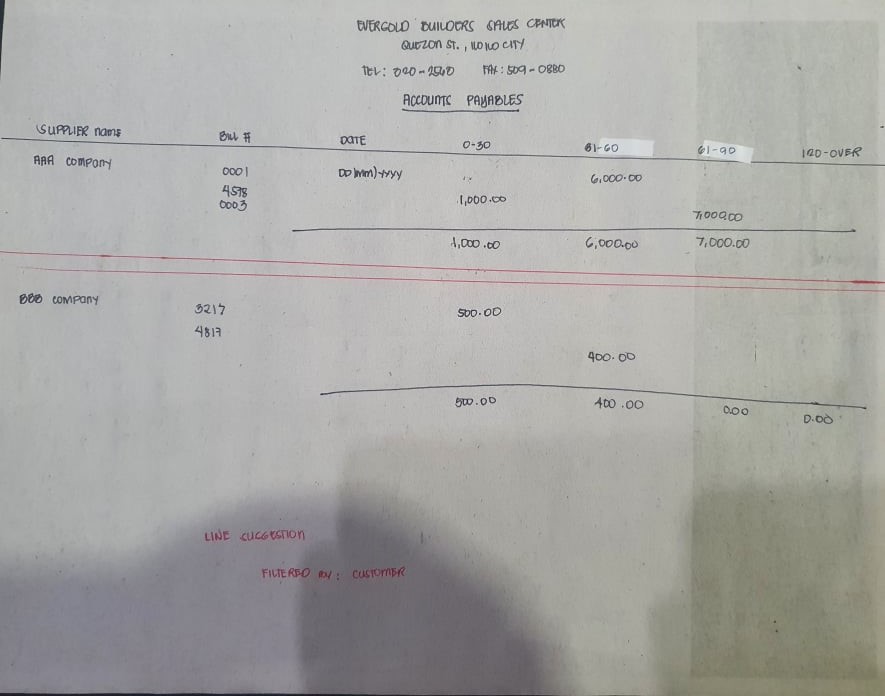 EVERGOLD BUILDERS SALES CENTER
QUEZON ST., ILOILO CITY
TEL: 020-2560 FAX: 509-0880
ACCOUNTS PAYABLES
SUPPLIER name Bill # DATE 0-30 31-60 61-90 120-OVER
AAA company
0001 DD/mm/yyyy 6,000.00
4578 1,000.00
0003 7,000.00
1,000.00 6,000.00 7,000.00
BBB company
3217 500.00
4817
400.00
500.00 400.00 0.00 0.00
LINE SUGGESTION
FILTERED BY: CUSTOMER